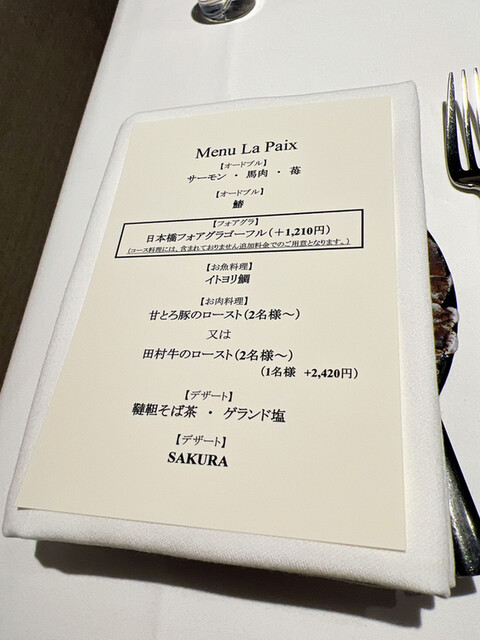 Menu La Paix
【オードブル】
サーモン ・ 馬肉 ・ 苺
【オードブル】
鰆
【フォアグラ】
日本橋フォアグラゴーフル（＋1,210円）
（コース料理には、含まれておりません追加料金でのご用意となります。）
【お魚料理】
イトヨリ鯛
【お肉料理】
甘とろ豚のロースト（2名様～）
又は
田村牛のロースト（2名様～）
（1名様 +2,420円）
【デザート】
韃靼そば茶 ・ ゲランド塩
【デザート】
SAKURA